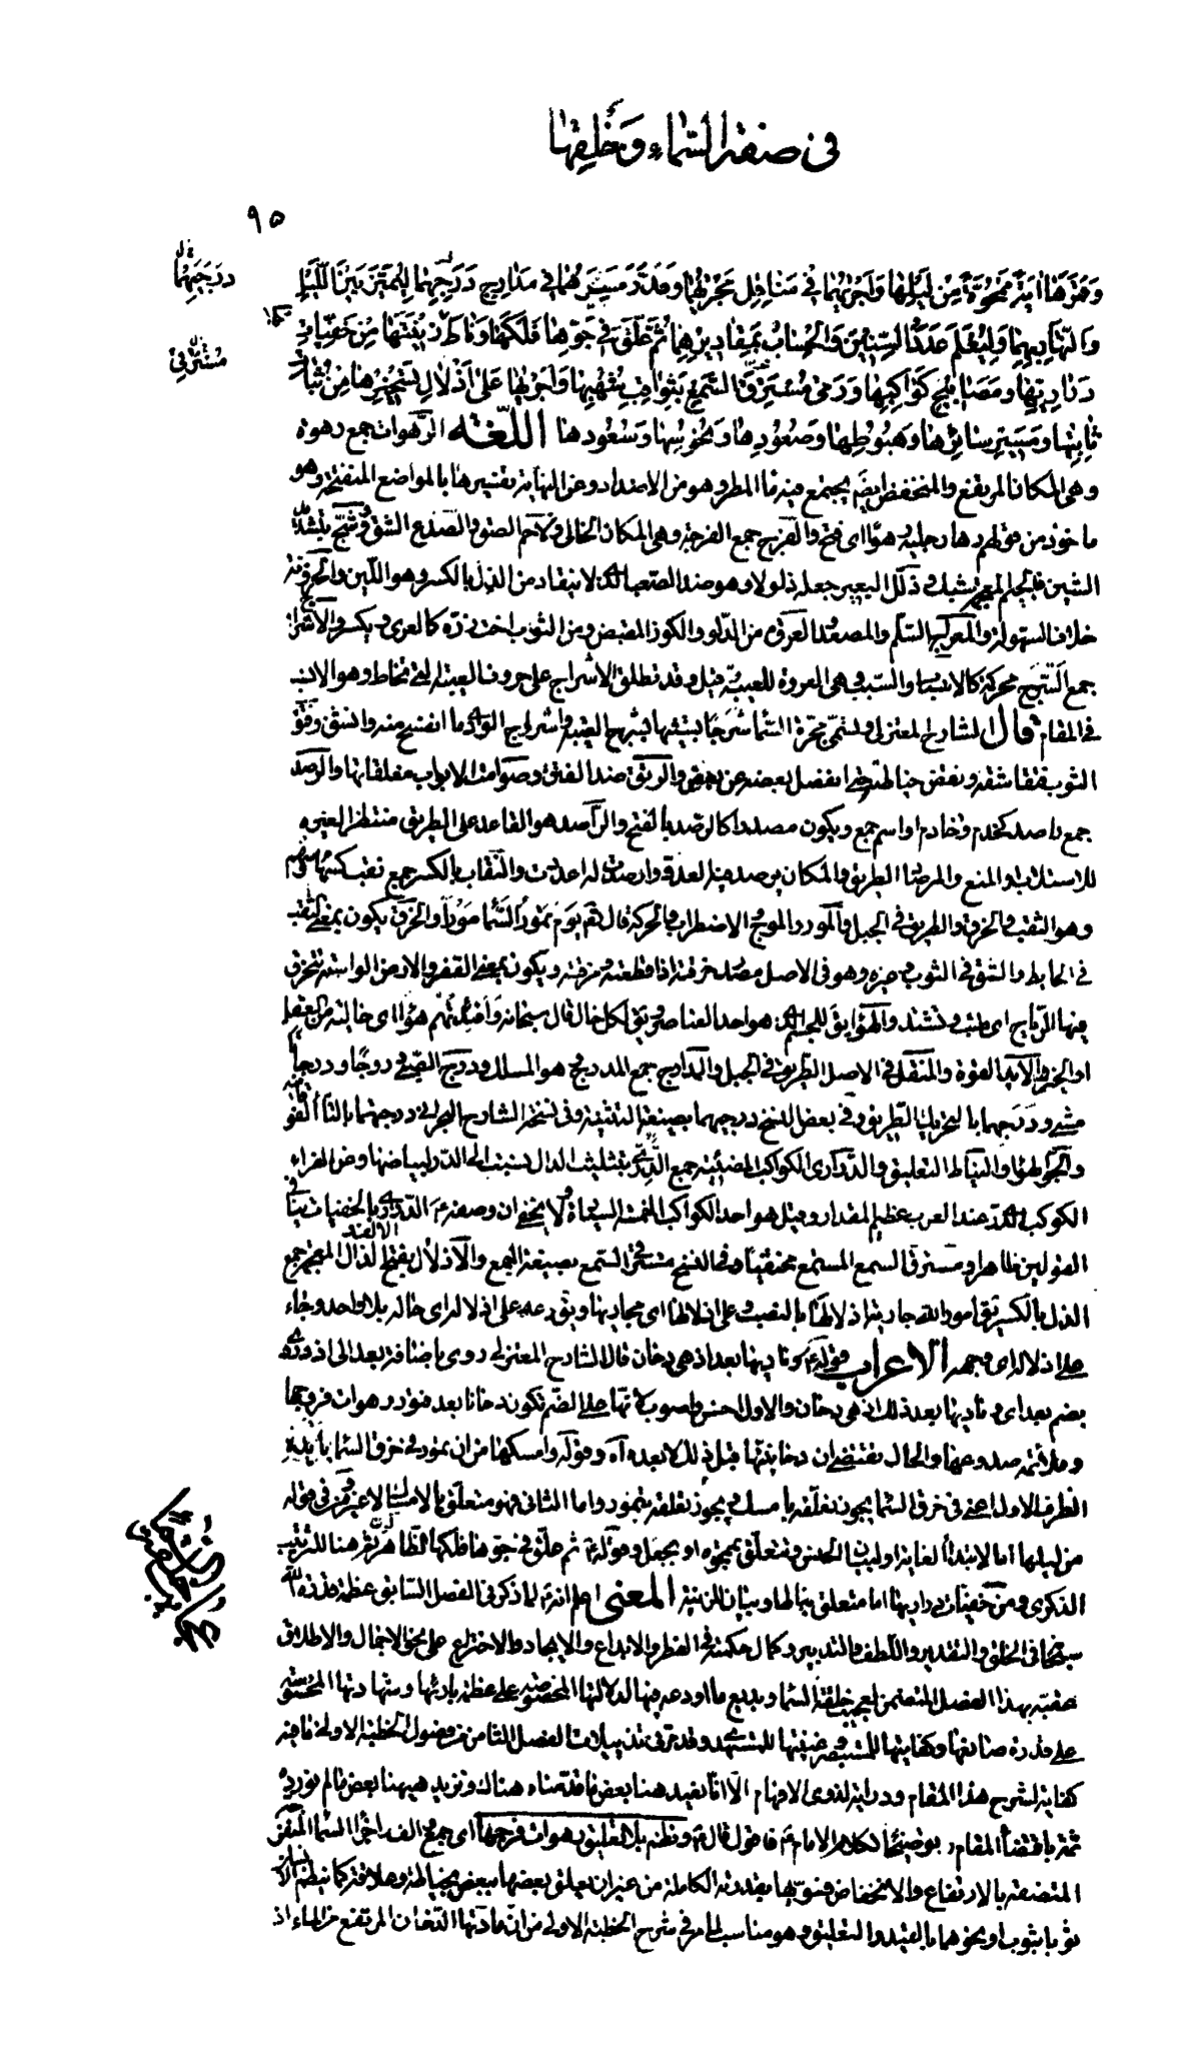 في صفة السماء وخلقها
٩٥
درجيهما
مسترقي
وقمرها آية ممحوة من ليلها وأجريهما في مناقل مجريهما وقدر مسيرهما في مدارج درجهما ليميز بين الليل
والنهار بهما وليعلم عدد السنين والحساب بمقاديرهما ثم علق في جوها فلكها وناط بها زينتها من خفيات
دراريها ومصابيح كواكبها ورمى مسترق السمع بثواقب شهبها وأجريها على أذلال تسخيرها من ثبات
ثابتها ومسير سائرها وهبوطها وصعودها ونحوسها وسعودها اللغة الرهوات جمع رهوة
وهي المكان المرتفع والمنخفض أيضا يجتمع فيه ماء المطر وهو من الاضداد وعن النهاية تفسيرها بالمواضع المنفتحة وهو
ماخوذ من قولهم رها رجليه رهوا اى فتح والفرج جمع الفرجة وهي المكان الخالي ولاحم الصق والصدع الشق ووشج بتشديد
الشين فالجيم المعجمة شبك وذلل البعير جعله ذلولا وهو ضد الصعب الذي لا ينقاد من الذل بالكسر وهو اللين والحزونة
خلاف السهولة والمعراج السلم والمصعد العرى من الدلو والكوز المقبض ومن الثوب اخت زره كالعرى ويكسر والاشراج
جمع الشرج محركة كالاسباب والسبب وهي العروة للعيبة قيل وقد تطلق الاشراج على حروف العيبة التي تخاط وهو الانسب
في المقام قال الشارح المعتزلي وتسمى مجرة السماء شرجا تشبيها بشرج العيبة واشراج الوادى ما انفسح منه وانشق وفتق
الثوب فتقا شقه ونقض خياطته حتى انفصل بعضه عن بعض والرتق ضد الفتق وصوامت الابواب مغلقاتها والرصد
جمع راصد كخدم وخادم او اسم جمع ويكون مصدرا كالرصد بالفتح والراصد هو القاعد على الطريق منتظرا لغيره
للاستلاب او المنع والمرصاد الطريق والمكان يرصد فيه العدو وارصدت له اعددت والنقاب بالكسر جمع نقب كسهام وسهم
وهو الثقب والخرق والطريق في الجبل والمور الموج والاضطراب والحركة قال تعالى يوم تمور السماء مورا والخرق يكون بمعنى الثقب
في الحايط والشق في الثوب وغيره وهو في الاصل مصدر خرقته اذا قطعته ومزقته ويكون بمعنى القفر والارض الواسعة تتخرق
فيها الرياح اى تهب وتشتد والهواء يق للجسم الذي هو احد العناصر ويق لكل خال قال سبحانه وافئدتهم هواء اى خالية من العقل
او الخير والايد القوة والمنقل في الاصل الطريق في الجبل والمدارج جمع المدرج هو المسلك ودرج الصبي دروجا ودرجانا
مشى ودرجهما بالتحريك الطريق وفي بعض النسخ درجيهما بصيغة التثنية وفي نسخة الشارح البحراني درجتهما بالتاء الفوقانية
والجو الهواء والنياط التعليق والدراري الكواكب المضيئة جمع الدري بتثليث الدال نسبت الى الدر لبياضها وعن الفراء
الكوكب الدري عند العرب عظيم المقدار وقيل هو احد الكواكب الخمسة السيارة ولا يخفى ان وصفه الدراري بالخفيات ينافي
القولين ظاهرا ومسترق السمع المستمع مختفيا وفي النسخ مسترقي السمع بصيغة الجمع والاذلال بفتح الذال المعجمة جمع
الذل بالكسر يق امور الله جارية اذلالها بالنصب وعلى اذلالها اى مجاريها ويق دعه على اذلاله اى حاله بلا واحد وجاء
على اذلاله اى وجهه الاعراب قوله ع وناديها بعد اذ هي دخان قال الشارح المعتزلي روى باضافة بعد الى اذ وروى
بضم بعد اى وناديها بعد ذلك اذ هي دخان والاول احسن واصوب لانها على الضم تكون دخانا بعد نظمه رهوات فروجها
وملاحمة صدوعها والحال يقتضى ان دخانيتها قبل ذلك لا بعده آه وقوله وامسكها من ان تمور في خرق السماء بايده
الظرف الاول اعنى في خرق السماء يجوز تعلقه بامسك ويجوز تعلقه بتمور واما الثاني فهو متعلق بالامساك لا غير ومن في قوله
من ليلها اما لابتداء الغاية او لبيان الجنس ومتعلق بممحوة او بجعل وقوله ع ثم علق في جوها فلكها الظاهر ان ثم هنا للترتيب
الذكري ومن خفيات دراريها اما متعلق بناط او بيان للزينة المعنى اعلم انه ع لما ذكر في الفصل السابق عظمة قدرة الله
سبحانه في الخلق والتقدير واللطف والتدبير وكمال حكمته في الفطر والابداع والايجاد والاختراع على نحو الاجمال والاطلاق
عقبه بهذا الفصل المتضمن لعجيب خلقة السماء وبديع ما اودعه فيها لدلالتها المخصوصة على عظمة بارئها وشهادتها المحسوسة
على قدرة صانعها وكفايتها للمستبصر وغنيتها للمستهدى وقد مر في تذييلات الفصل الثامن من فصول الخطبة الاولى ما فيه
كفاية لشرح هذا المقام ودراية لذوى الافهام الا انا نعيد هنا بعض ما قدمناه هناك ونزيد هيهنا بعض ما لم نورده
ثمة باقتضاء المقام وتوضيحا لكلام الامام ع فاقول قال ع ونظم بلا تعليق رهوات فرجها اى جمع والف اجزاء السماء المتفرجة
المتصفة بالارتفاع والانخفاض فسويها بقدرته الكاملة من غير ان يعلق بعضها ببعض بخياطة وعلاقة كما ينظم الانسان
ثوبا بثوب او نحوهما بالقيد والتعليق وهو مناسب لما مر في شرح الخطبة الاولى من ان مادتها الدخان المرتفع من الماء اذ